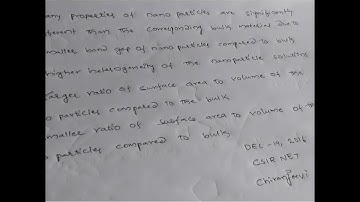 any properties of nano particles are significantly
ferent than the corresponding bulk material due to
maller band gap of nanoparticles compared to bulk
higher heterogeneity of the nanoparticle solutions
Larger ratio of surface area to volume of the
o particles compared to the bulk
maller ratio of surface area to volume of the
o particles compared to bulk
DEC-19, 2016
CSIR NET
Chiranjeevi